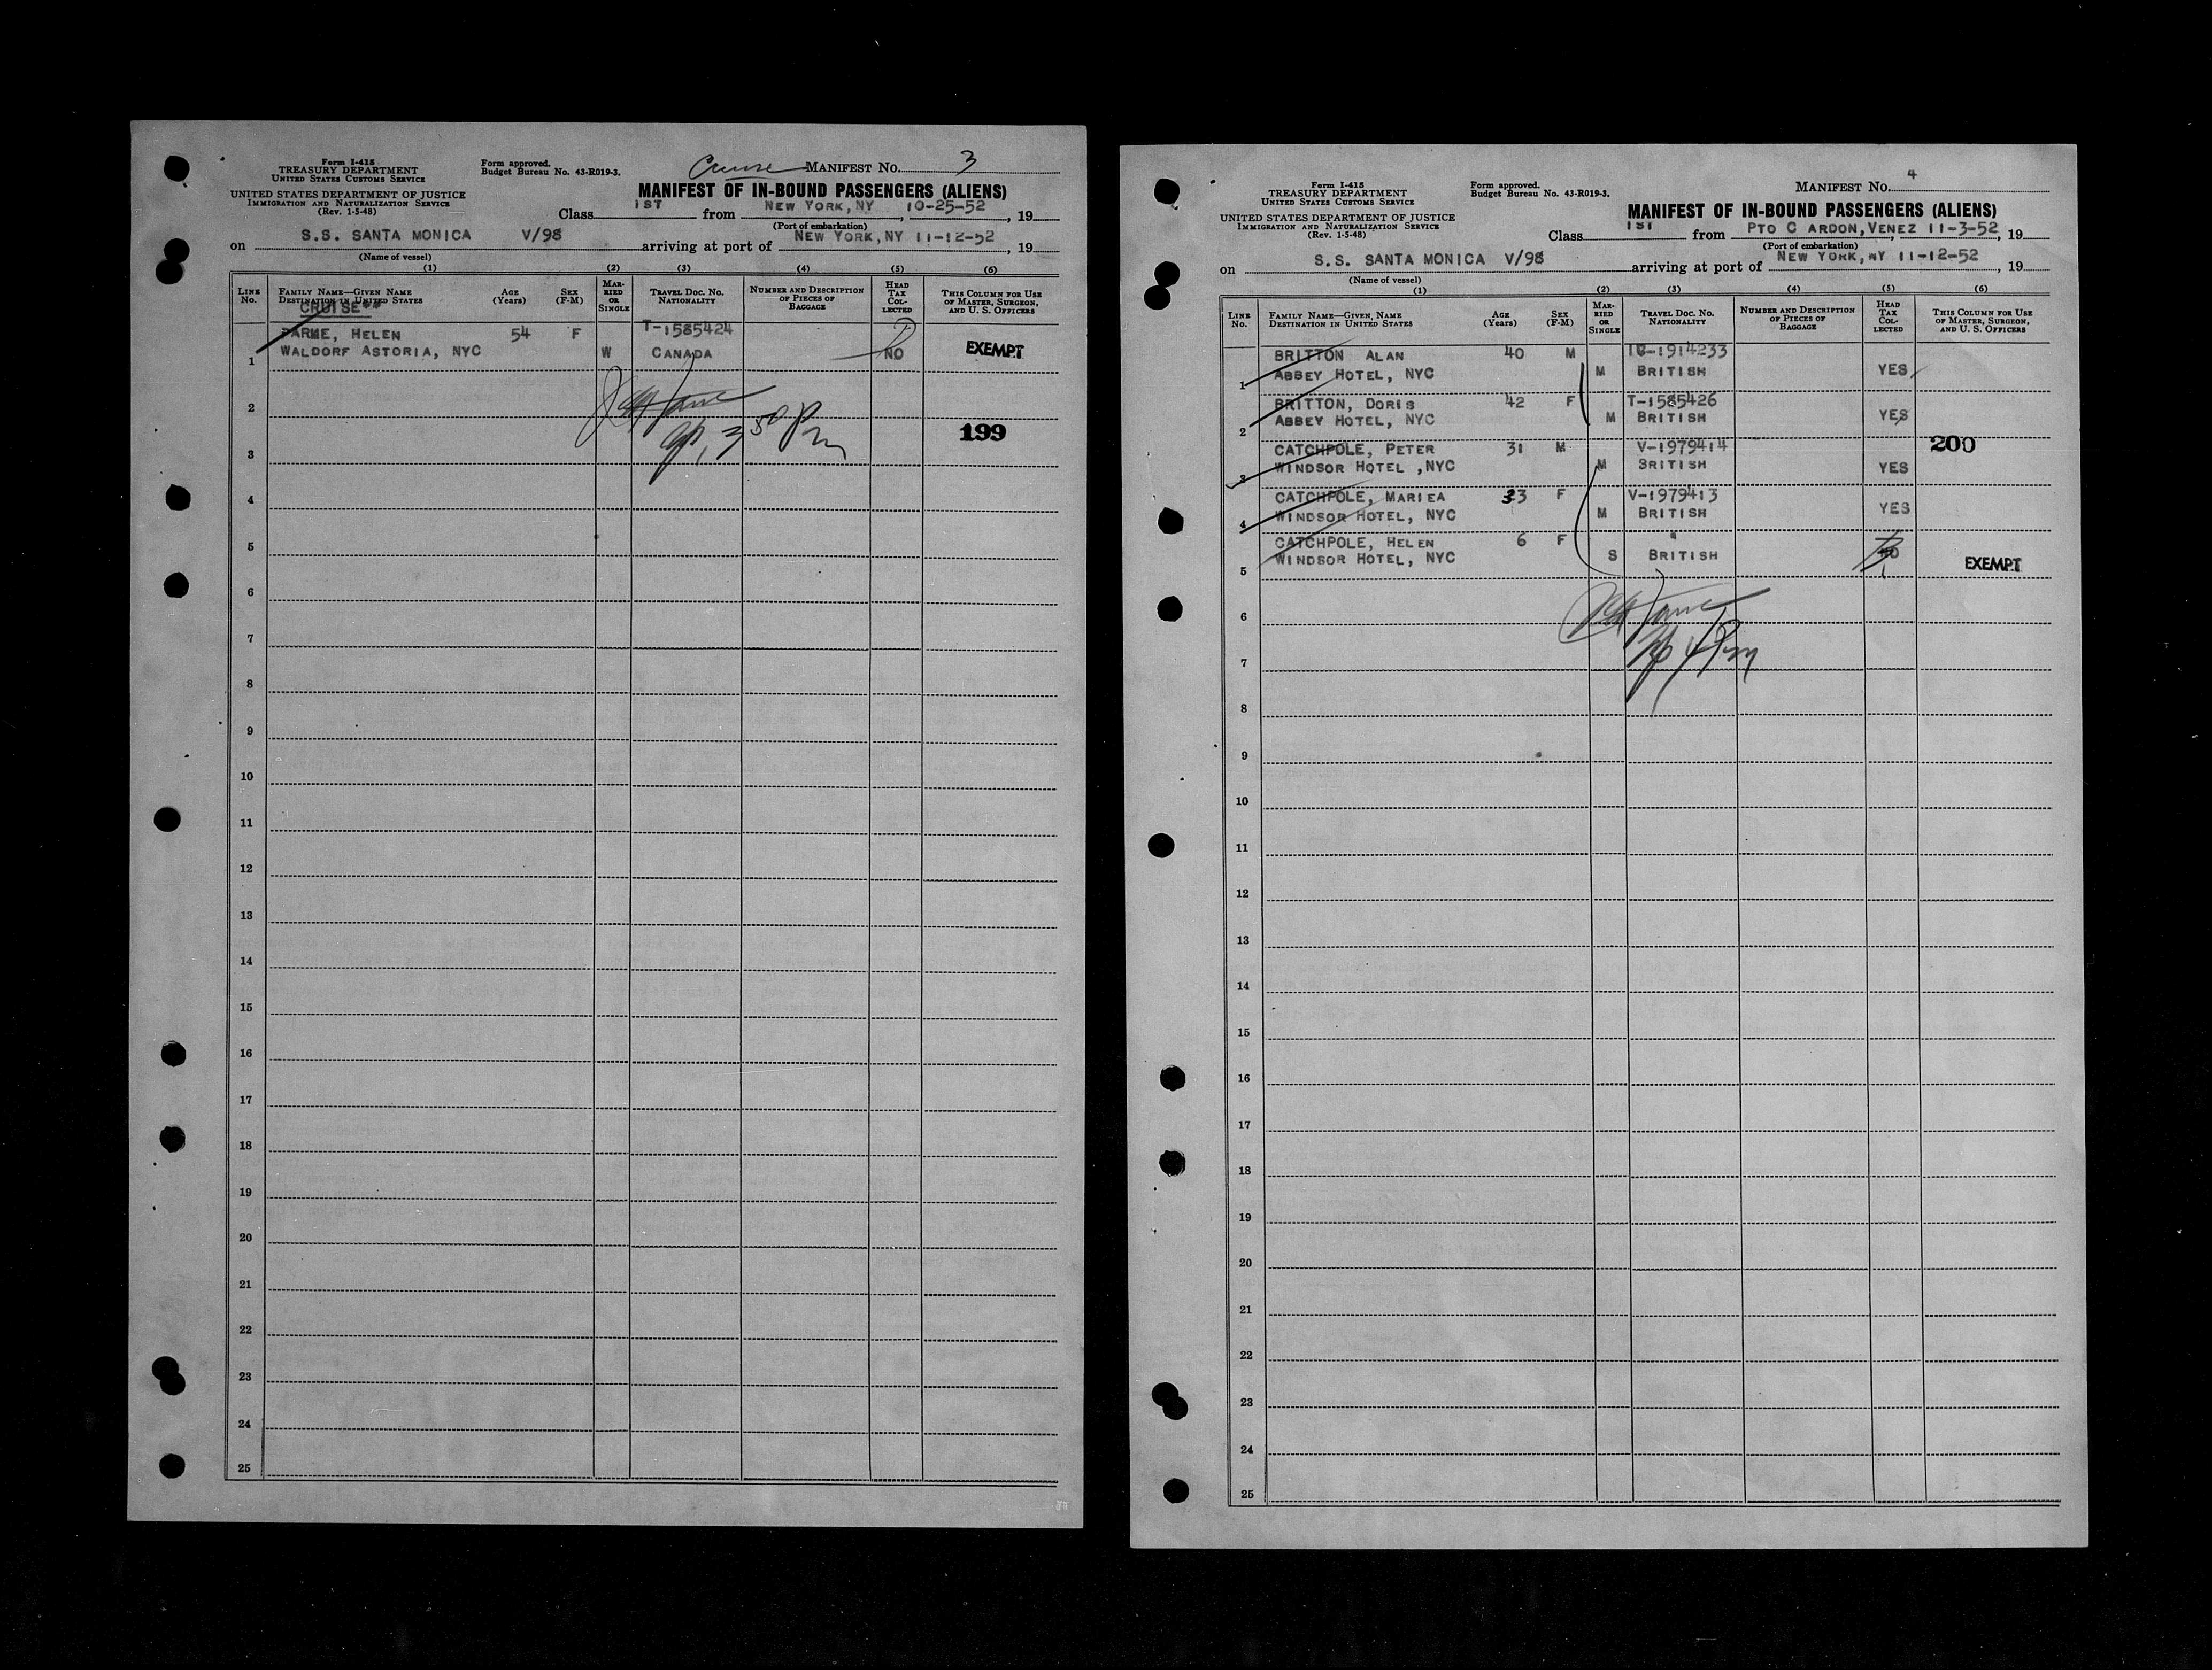 Form I-415
TREASURY DEPARTMENT
UNITED STATES CUSTOMS SERVICE
UNITED STATES DEPARTMENT OF JUSTICE
IMMIGRATION AND NATURALIZATION SERVICE
(Rev. 1-5-48)
Form approved.
Budget Bureau No. 43-R019-3.
Cruise MANIFEST NO. 3
MANIFEST OF IN-BOUND PASSENGERS (ALIENS)
Class 1ST from NEW YORK, NY 10-25-52, 19
(Port of embarkation)
on S.S. SANTA MONICA V/98 arriving at port of NEW YORK, NY 11-12-52, 19
(Name of vessel)
(1) (2) (3) (4) (5) (6)
LINE NO. FAMILY NAME—GIVEN NAME DESTINATION IN UNITED STATES AGE (Years) SEX (F-M) MARRIED OR SINGLE TRAVEL DOC. NO. NATIONALITY NUMBER AND DESCRIPTION OF PIECES OF BAGGAGE HEAD TAX COLLECTED THIS COLUMN FOR USE OF MASTER, SURGEON, AND U. S. OFFICERS
CRUISE**
PARME, HELEN 54 F T-1585424
1 WALDORF ASTORIA, NYC W CANADA NO EXEMPT
2
199
3
4
5
6
7
8
9
10
11
12
13
14
15
16
17
18
19
20
21
22
23
24
25
Form I-415
TREASURY DEPARTMENT
UNITED STATES CUSTOMS SERVICE
UNITED STATES DEPARTMENT OF JUSTICE
IMMIGRATION AND NATURALIZATION SERVICE
(Rev. 1-5-48)
Form approved.
Budget Bureau No. 43-R019-3.
MANIFEST NO. 4
MANIFEST OF IN-BOUND PASSENGERS (ALIENS)
Class 1ST from PTO C ARDON, VENEZ 11-3-52, 19
(Port of embarkation)
on S.S. SANTA MONICA V/98 arriving at port of NEW YORK, NY 11-12-52, 19
(Name of vessel)
(1) (2) (3) (4) (5) (6)
LINE NO. FAMILY NAME—GIVEN NAME DESTINATION IN UNITED STATES AGE (Years) SEX (F-M) MARRIED OR SINGLE TRAVEL DOC. NO. NATIONALITY NUMBER AND DESCRIPTION OF PIECES OF BAGGAGE HEAD TAX COLLECTED THIS COLUMN FOR USE OF MASTER, SURGEON, AND U. S. OFFICERS
BRITTON ALAN 40 M 1914233
1 ABBEY HOTEL, NYC M BRITISH YES
BRITTON, DORIS 42 F T-1585426
2 ABBEY HOTEL, NYC M BRITISH YES
CATCHPOLE, PETER 31 M V-1979414 200
3 WINDSOR HOTEL ,NYC M BRITISH YES
CATCHPOLE, MARIEA 33 F V-1979413
4 WINDSOR HOTEL, NYC M BRITISH YES
CATCHPOLE, HELEN 6 F "
5 WINDSOR HOTEL, NYC S BRITISH NO EXEMPT
6
7
8
9
10
11
12
13
14
15
16
17
18
19
20
21
22
23
24
25